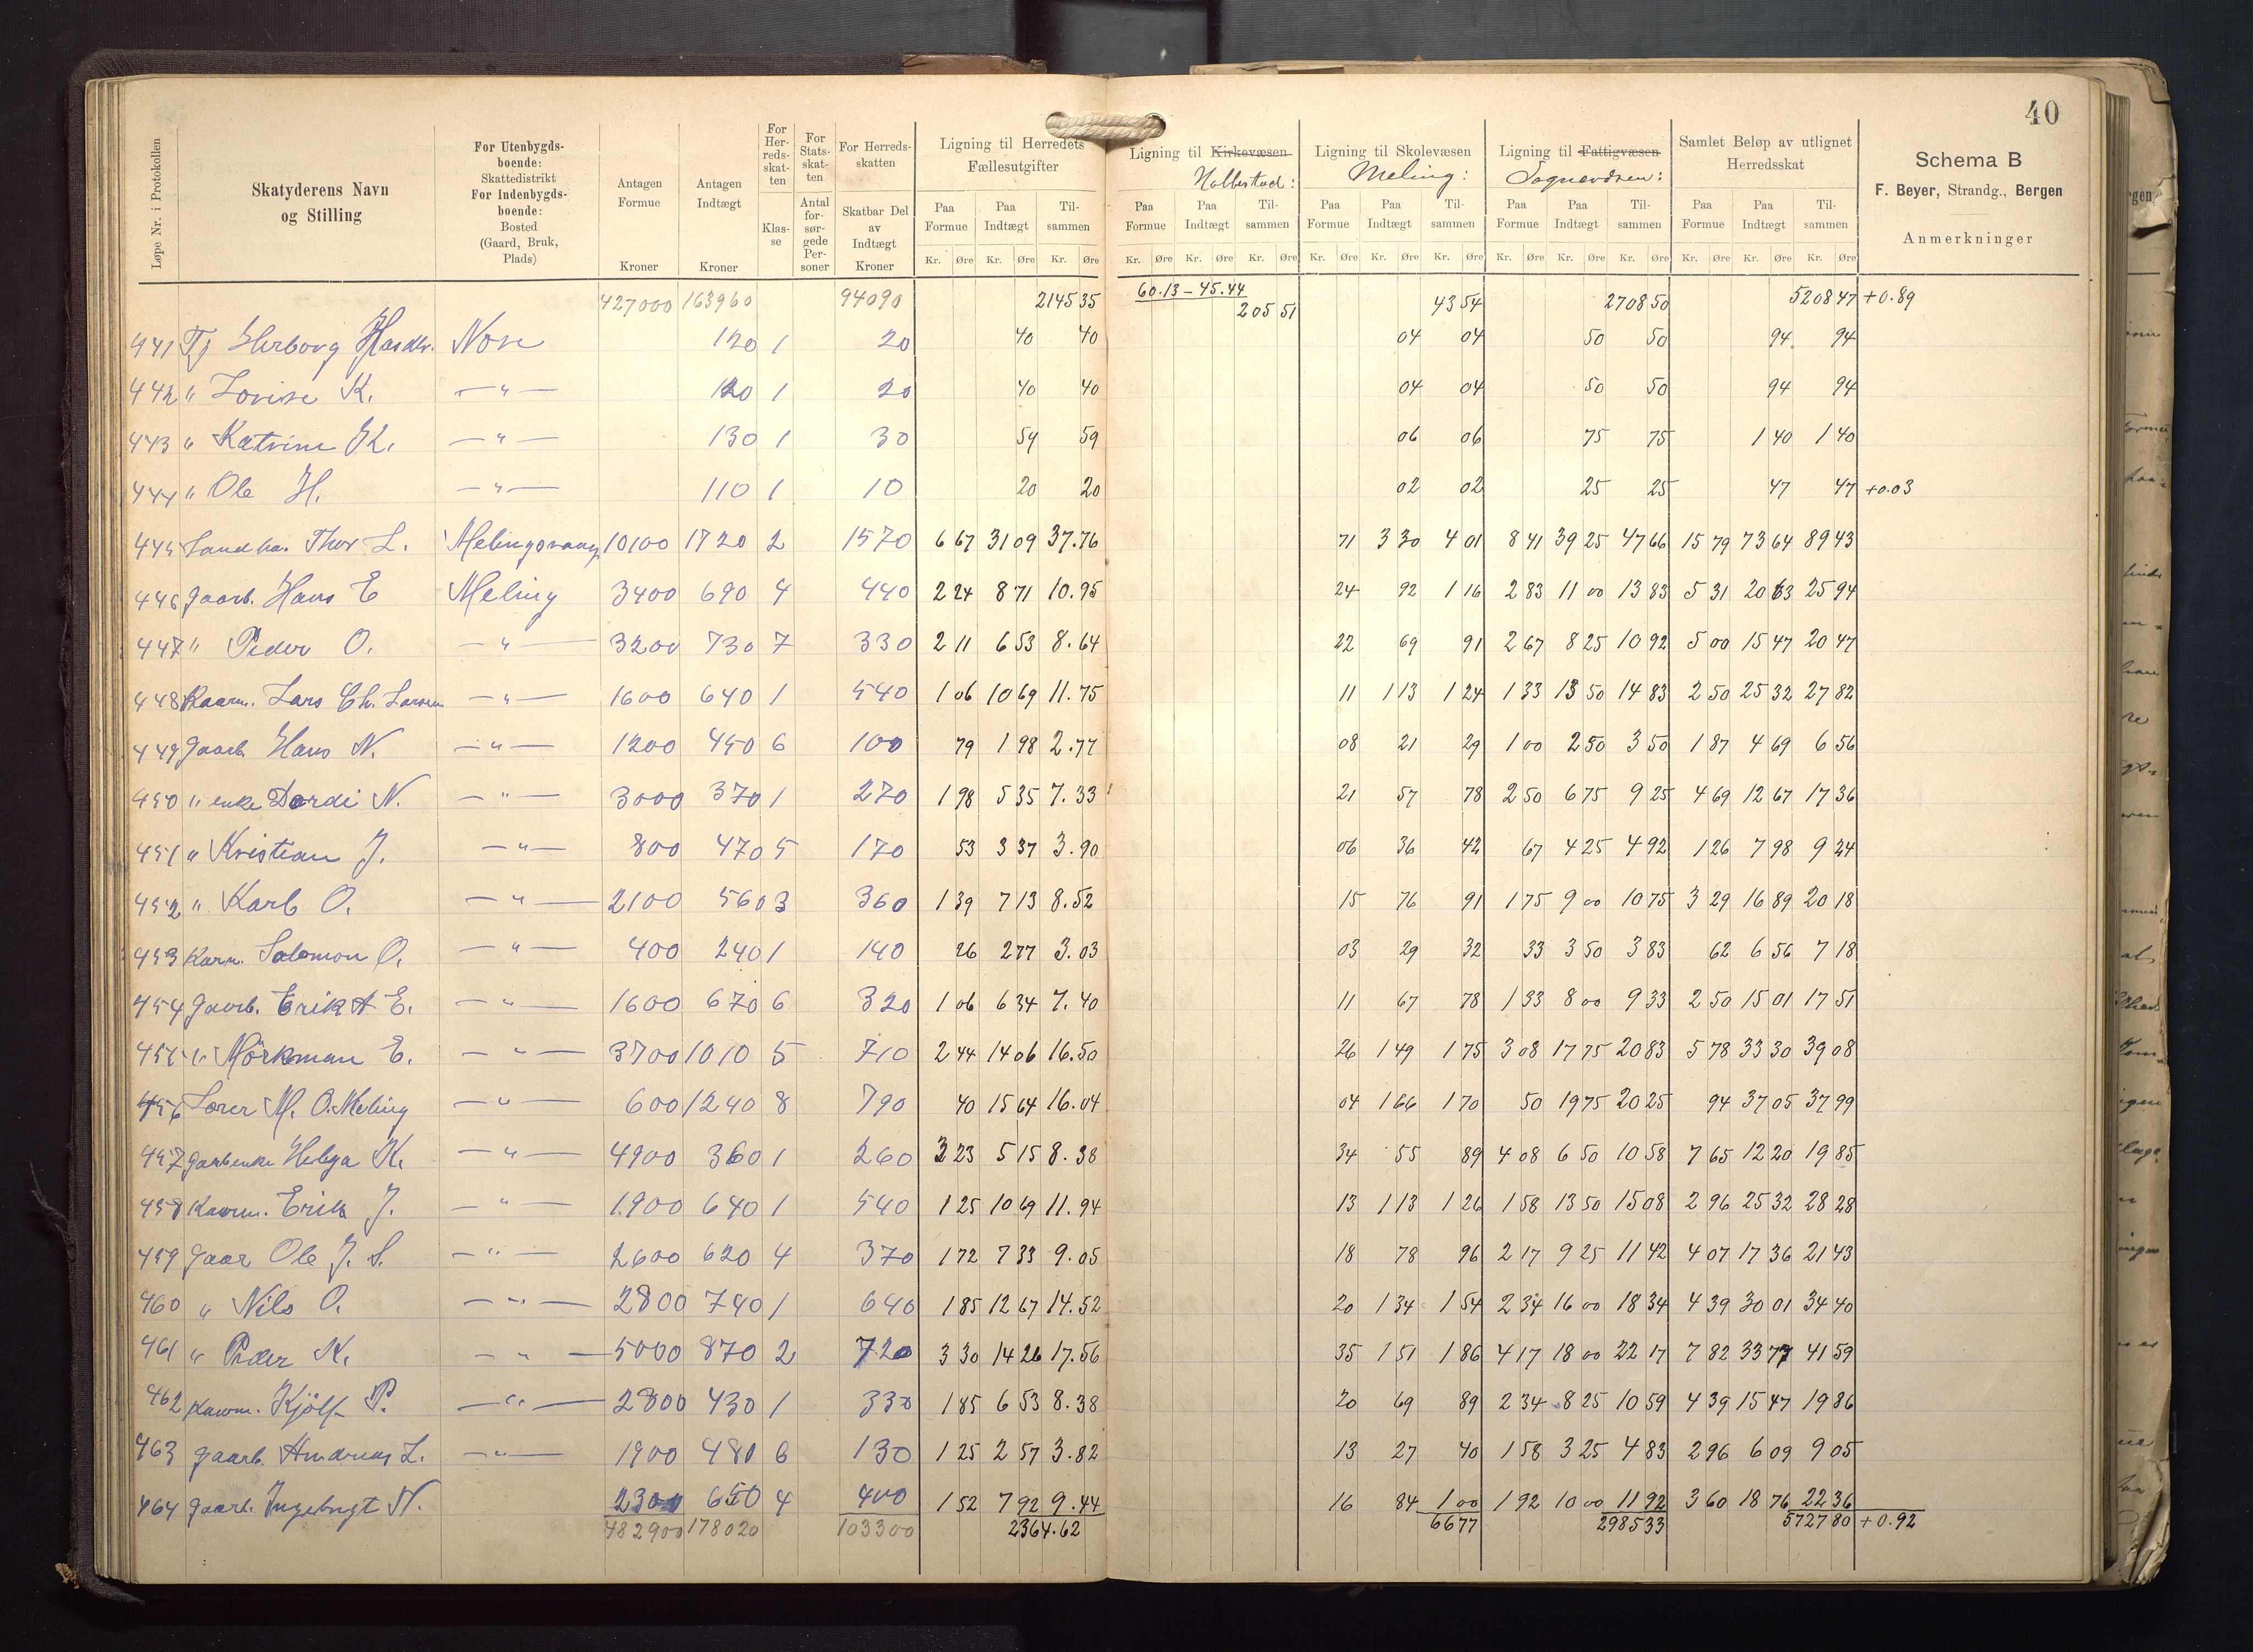 40
Løpe Nr. i Protokollen
Skatyderens Navn og Stilling
For Utenbygds-boende: Skattedistrikt For Indenbygds-boende: Bosted (Gaard, Bruk, Plads)
Antagen Formue Kroner
Antagen Indtægt Kroner
For Her-reds-skat-ten Klas-se
For Stats-skat-ten Antal for-sør-gede Per-soner
For Herreds-skatten Skatbar Del av Indtægt Kroner
Ligning til Herredets Fællesutgifter Paa Formue Paa Indtægt Til-sammen Kr. Øre Kr. Øre Kr. Øre
Ligning til Kirkevæsen Paa Formue Paa Indtægt Til-sammen Kr. Øre Kr. Øre Kr. Øre
Ligning til Skolevæsen Meling: Paa Formue Paa Indtægt Til-sammen Kr. Øre Kr. Øre Kr. Øre
Ligning til Fattigvæsen Paa Formue Paa Indtægt Til-sammen Kr. Øre Kr. Øre Kr. Øre
Samlet Beløp av utlignet Herredsskat Paa Formue Paa Indtægt Til-sammen Kr. Øre Kr. Øre Kr. Øre
Schema B
F. Beyer, Strandg., Bergen
Anmerkninger
427000 163960 94090 2145 35 60.13 – 45.44 205 51 43 54 2708 50 5208 47 +0.89
441 Tj Herborg Nore 120 1 20 40 40 04 04 50 50 94 94
442 " Lovise K. — " — 120 1 20 40 40 04 04 50 50 94 94
443 " Katrine K. — " — 130 1 30 59 59 06 06 75 75 1 40 1 40
444 " Ole H. — " — 110 1 10 20 20 02 02 25 25 47 47 +0.03
445 Landha. Thor L. 10100 1720 2 1570 6 67 31 09 37.76 71 3 30 4 01 8 41 39 25 47 66 15 79 73 64 89 43
446 Gaarb. Hans E Meling 3400 690 4 440 2 24 8 71 10.95 24 92 1 16 2 83 11 00 13 83 5 31 20 63 25 94
447 " Peder O. — " — 3200 730 7 330 2 11 6 53 8.64 22 69 91 2 67 8 25 10 92 5 00 15 47 20 47
448 Kaarm. Lars Ch. Larsen — " — 1600 640 1 540 1 06 10 69 11.75 11 1 13 1 24 1 33 13 50 14 83 2 50 25 32 27 82
449 Gaarb Hans N. — " — 1200 450 6 100 79 1 98 2.77 08 21 29 1 00 2 50 3 50 1 87 4 69 6 56
450 " enke Dordi N. — " — 3000 370 1 270 1 98 5 35 7.33 21 57 78 2 50 6 75 9 25 4 69 12 67 17 36
451 " Kristian J. — " — 800 470 5 170 53 3 37 3.90 06 36 42 67 4 25 4 92 1 26 7 98 9 24
452 " Karl O. — " — 2100 560 3 360 1 39 7 13 8.52 15 76 91 1 75 9 00 10 75 3 29 16 89 20 18
453 Karm. Salomon O. — " — 400 240 1 140 26 2 77 3.03 03 29 32 33 3 50 3 83 62 6 56 7 18
454 Gaarb. Erik A E. — " — 1600 670 6 320 1 06 6 34 7.40 11 67 78 1 33 8 00 9 33 2 50 15 01 17 51
455 " Mörkman E. — " — 3700 1010 5 710 2 44 14 06 16.50 26 1 49 1 75 3 08 17 75 20 83 5 78 33 30 39 08
456 Lærer M. O. Meling — " — 600 1240 8 790 40 15 64 16.04 04 1 66 1 70 50 19 75 20 25 94 37 05 37 99
457 Gaarbenke Helga K. — " — 4900 360 1 260 3 23 5 15 8.38 34 55 89 4 08 6 50 10 58 7 65 12 20 19 85
458 Kaarm. Erik J. — " — 1900 640 1 540 1 25 10 69 11.94 13 1 13 1 26 1 58 13 50 15 08 2 96 25 32 28 28
459 Gaar Ole J. S. — " — 2600 620 4 370 1 72 7 33 9.05 18 78 96 2 17 9 25 11 42 4 07 17 36 21 43
460 " Nils O. — " — 2800 740 1 640 1 85 12 67 14.52 20 1 34 1 54 2 34 16 00 18 34 4 39 30 01 34 40
461 " Peder K. — " — 5000 870 2 720 3 30 14 26 17.56 35 1 51 1 86 4 17 18 00 22 17 7 82 33 77 41 59
462 Kaarm. Kjölf P. — " — 2800 430 1 330 1 85 6 53 8.38 20 69 89 2 34 8 25 10 59 4 39 15 47 19 86
463 Gaarb. Andreas L. — " — 1900 480 6 130 1 25 2 57 3.82 13 27 40 1 58 3 25 4 83 2 96 6 09 9 05
464 Gaarb. Ingebrigt N. 2300 650 4 400 1 52 7 92 9.44 16 84 1 00 1 92 10 00 11 92 3 60 18 76 22 36
482900 178020 103300 2364.62 66 77 2985 33 5727 80 +0.92